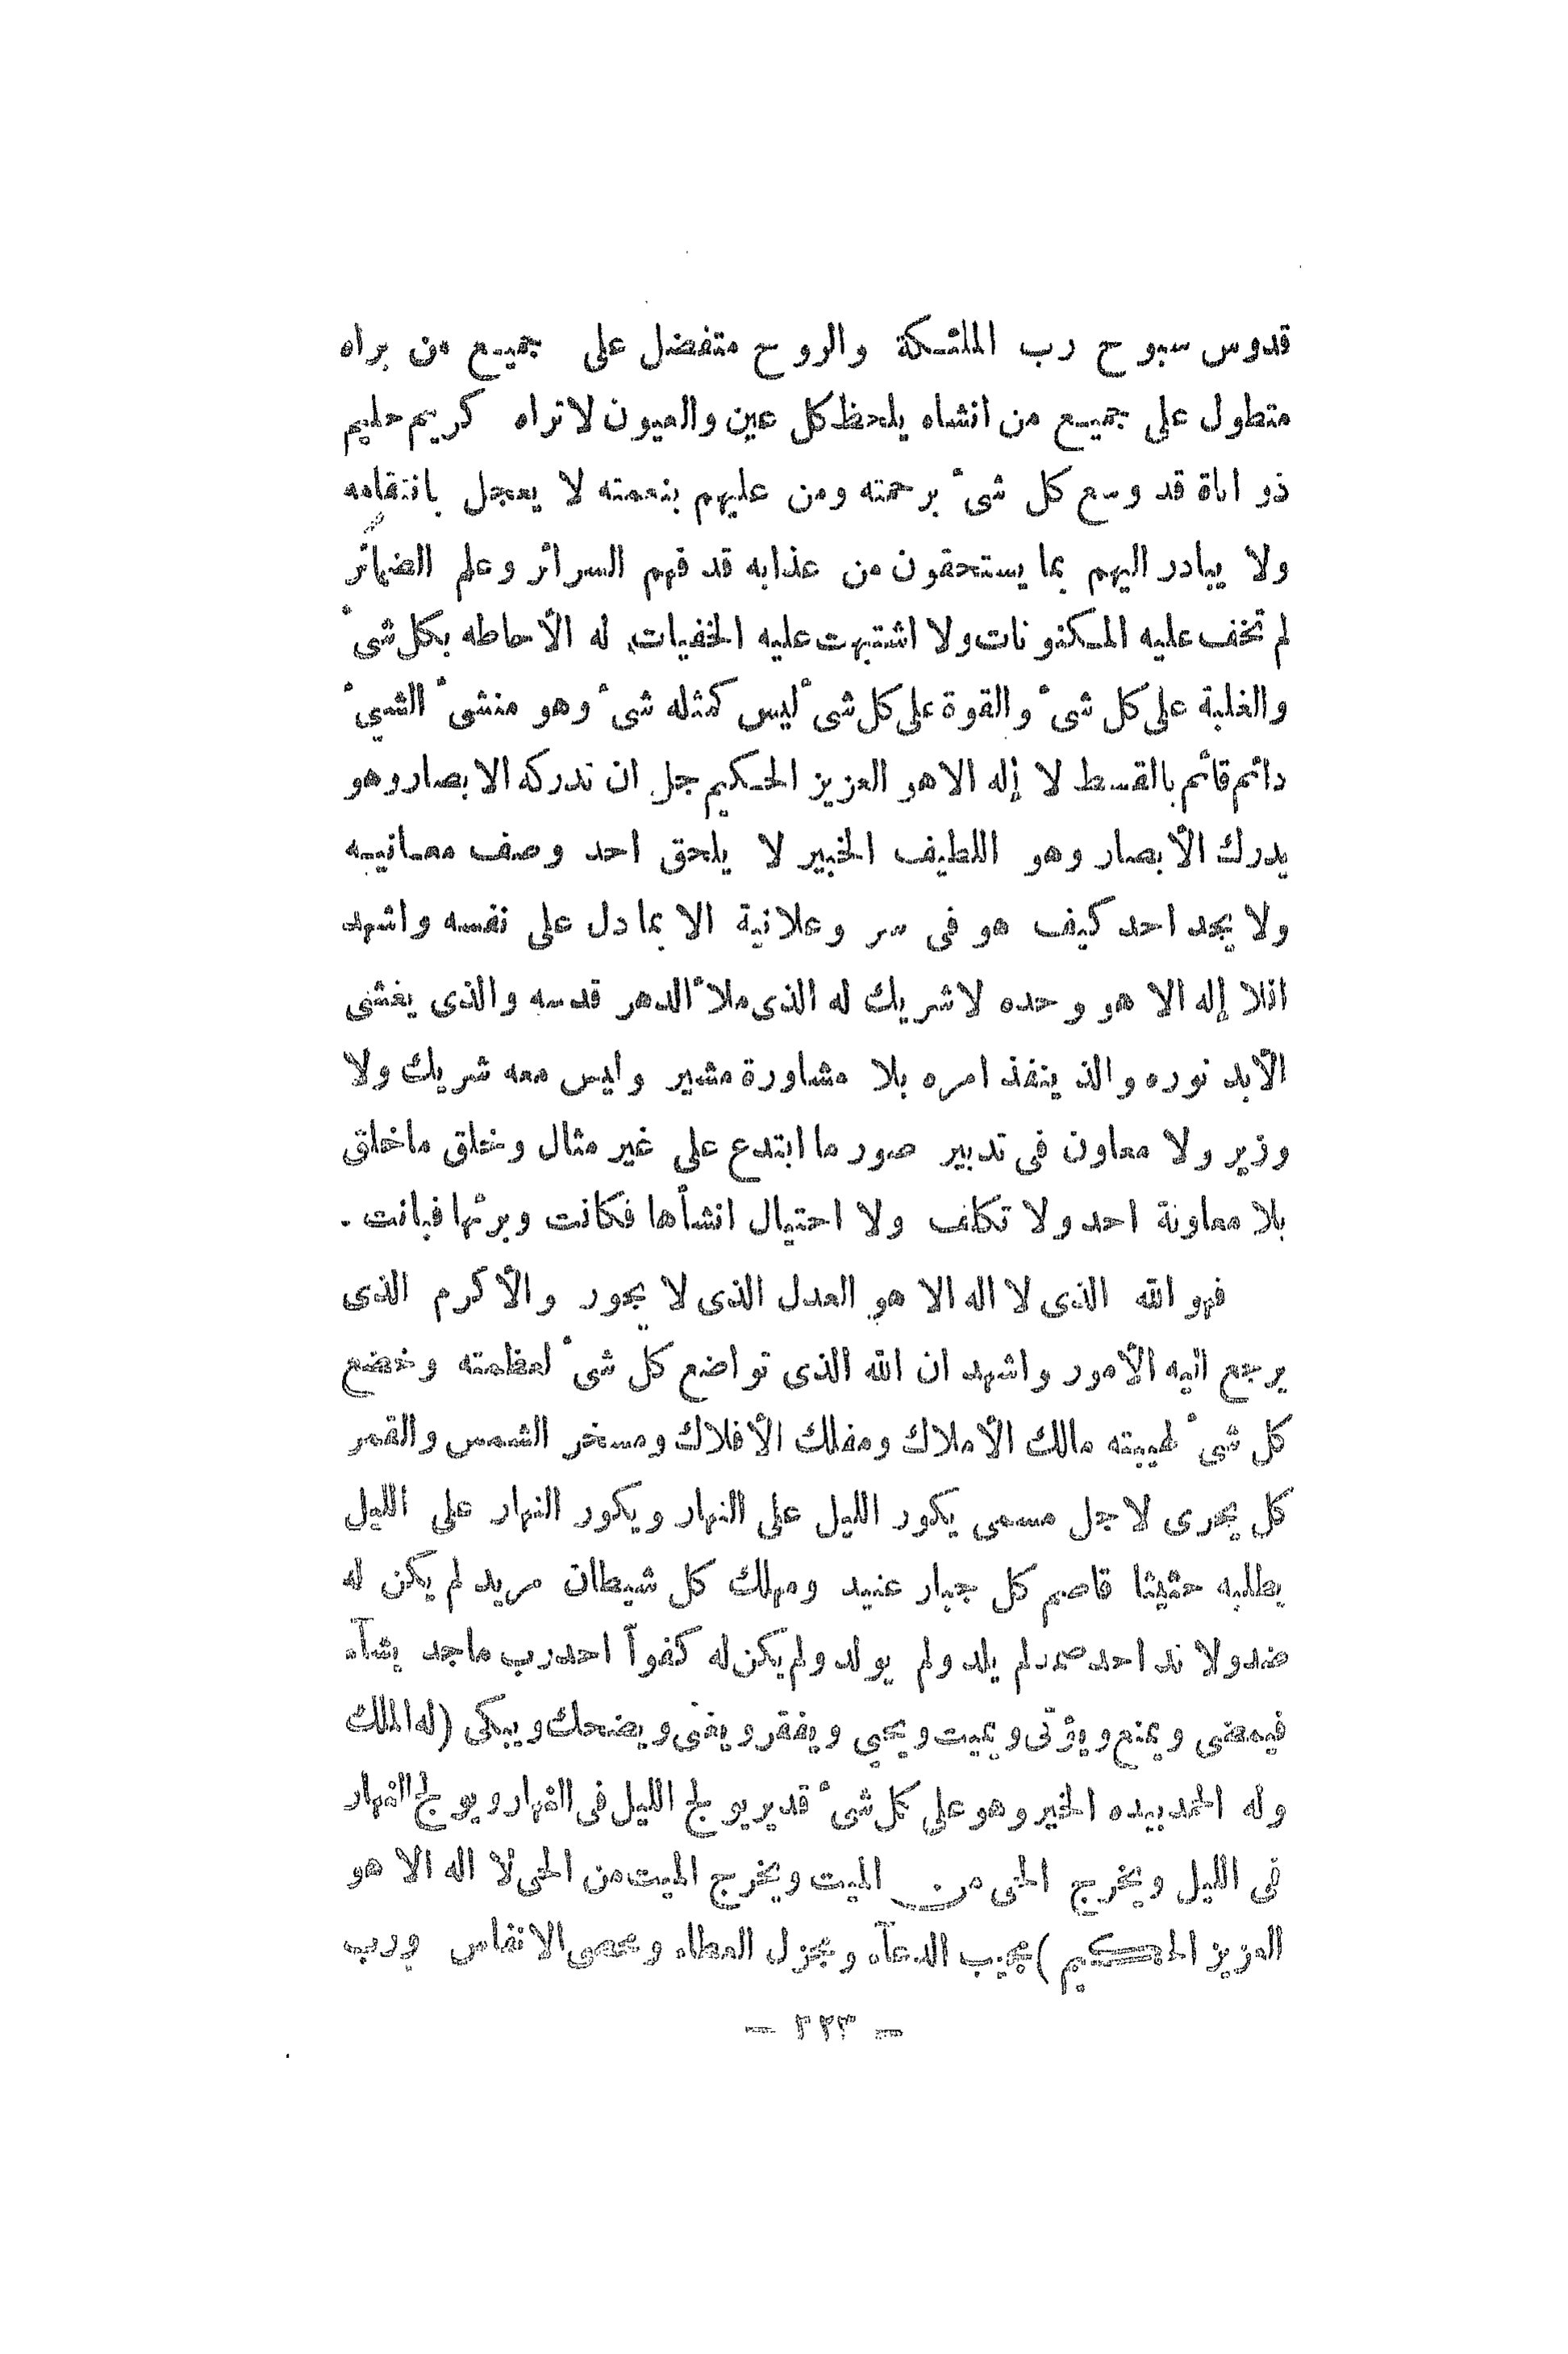 قدوس سبوح رب الملئكة والروح متفضل على جميع من براه
متطول على جميع من انشاه يلحظ كل عين والعيون لا تراه كريم حليم
ذو اناة قد وسع كل شىء برحمته ومن عليهم بنعمته لا يعجل بانتقامه
ولا يبادر اليهم بما يستحقون من عذابه قد فهم السرائر وعلم الضمائر
لم تخف عليه المكنونات ولا اشتبهت عليه الخفيات له الأحاطه بكل شىء
والغلبة على كل شىء والقوة على كل شىء ليس كمثله شىء وهو منشىء الشيء
دائم قائم بالقسط لا إله الا هو العزيز الحكيم جل ان تدركه الابصار وهو
يدرك الأبصار وهو اللطيف الخبير لا يلحق احد وصف معانيه
ولا يجد احد كيف هو فى سر وعلانية الا بما دل على نفسه واشهد
انلا إله الا هو وحده لا شريك له الذى ملاء الدهر قدسه والذى يغشى
الأبد نوره والذ ينفذ امره بلا مشاورة مشير وليس معه شريك ولا
وزير ولا معاون فى تدبير صور ما ابتدع على غير مثال وخلق ماخلق
بلا معاونة احد ولا تكلف ولا احتيال انشأها فكانت وبرئها فبانت .
فهو الله الذى لا اله الا هو العدل الذى لا يجور والأكرم الذى
يرجع اليه الأمور واشهد ان الله الذى تواضع كل شىء لعظمته وخضع
كل شىء لهيبته مالك الأملاك ومفلك الأفلاك ومسخر الشمس والقمر
كل يجرى لاجل مسمى يكور الليل على النهار ويكور النهار على الليل
يطلبه حثيثا قاصم كل جبار عنيد ومهلك كل شيطان مريد لم يكن له
ضد ولا ند احد صمد لم يلد ولم يولد ولم يكن له كفواً احد رب ماجد يشآء
فيمضى ويمنع ويؤتى ويميت ويحيي ويفقر ويغنى ويضحك ويبكى (له الملك
وله الحمد بيده الخير وهو على كل شىء قدير يولج الليل فى النهار ويولج النهار
فى الليل ويخرج الحى من الميت ويخرج الميت من الحى لا اله الا هو
العزيز الحكيم ) مجيب الدعآء ومجزل العطاء ومحصى الانفاس ورب
— ٢٢٣ —